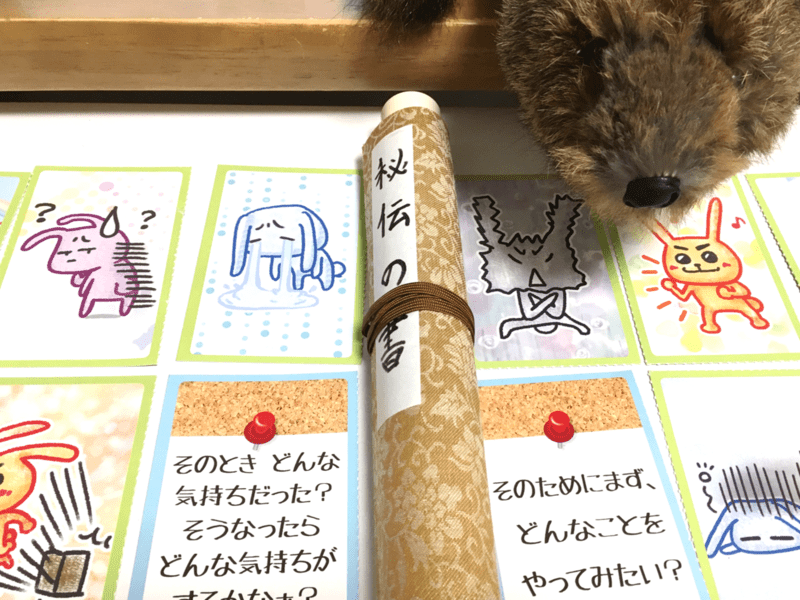 秘伝の書
? ?
そのとき どんな
気持ちだった?
そうなったら
どんな気持ちが
するかなぁ?
そのためにまず、
どんなことを
やってみたい?